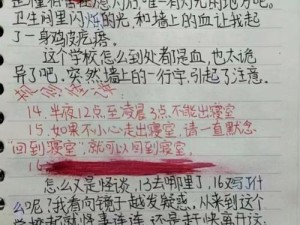 卫生间里闪烁的光,和墙上的血让我起
了一身鸡皮疙瘩。
这个学校怎么到处都是血,也太诡
异了吧。突然墙上的一行字,引起了注意。
14.半夜12点至凌晨3点,不能出寝室
15.如果不小心走出寝室 请一直默念
"回到寝室"就可以回到寝室
16
怎么又是怪谈,13去哪里了,16写了什
么呢?我看向镜子越发疑惑,从来到这个
学校起